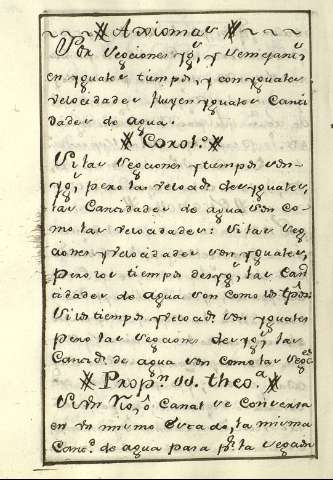 Axiomas
Por Secciones yg.s y Semejantes
en yguales tiempos, y con yguales
velocidades fluyen yguales Canti
dades de agua.
Corol.o
Si las Secciones y tiempos son
yg.s, pero las velocid.s desyguales,
las Cantidades de agua son co-
mo las velocidades: Si las Secc
iones y velocidades son yguales,
pero los tiempos desyg.s, las Can
tidades de agua son como los tpōs:
Si los tiempos y velocid.s son yguales
pero las Secciones desyg.s, las
Cantid.s de agua son como las Secc.es
Prop.n 11. theo.a
Si Vn Rio, ô Canal se Conserva
en vn mismo Estado, la misma
Cant.d de agua pasa p.r la Segada